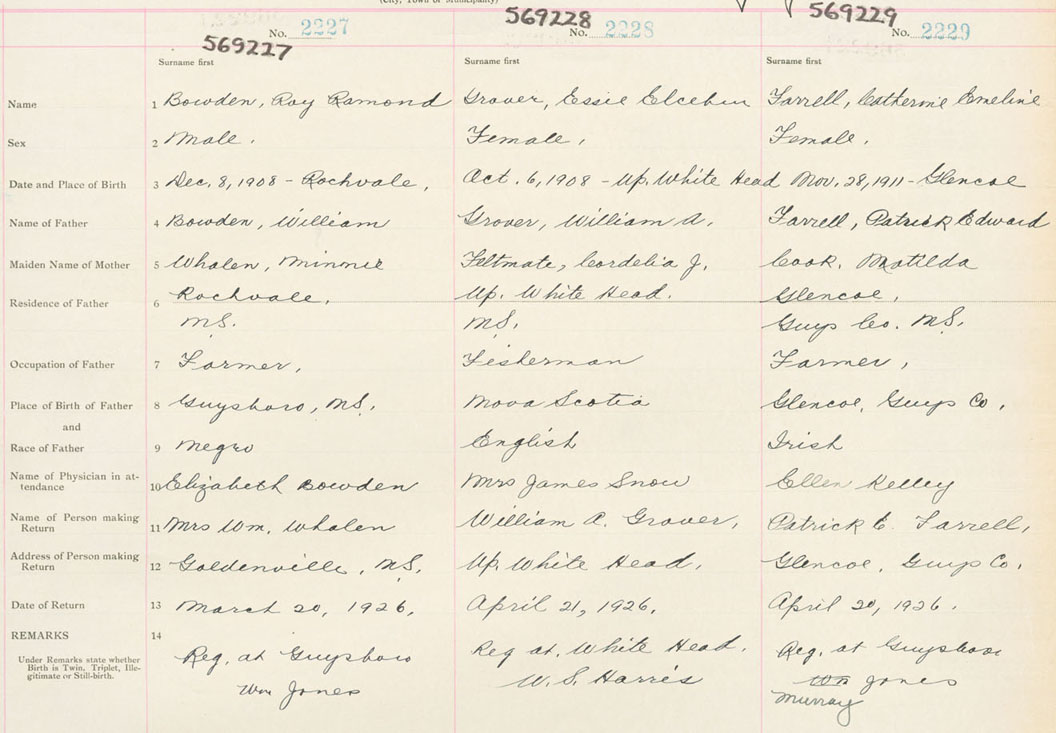 (City, Town or Municipality)
569227 569228 569229
No. 2227 No. 2228 No. 2229
Surname first Surname first Surname first
Name 1 Bowden, Roy Ramond Grover, Essie Farrell, Catherine Emeline
Sex 2 Male. Female, Female.
Date and Place of Birth 3 Dec. 8, 1908 - Rochvale, Oct. 6, 1908 - Up. White Head Nov. 28, 1911 - Glencoe
Name of Father 4 Bowden, William Grover, William A. Farrell, Patrick Edward
Maiden Name of Mother 5 Whalen, Minnie Feltmate, Cordelia J. Cook, Matilda
Residence of Father 6 Rochvale, Up. White Head. Glencoe,
N.S. N.S. Guys Co. N.S.
Occupation of Father 7 Farmer, Fisherman Farmer,
Place of Birth of Father 8 Guysboro, N.S. Nova Scotia Glencoe, Guys Co.
and
Race of Father 9 Negro English Irish
Name of Physician in at-
tendance 10 Elizabeth Bowden Mrs James Snow Ellen Kelley
Name of Person making
Return 11 Mrs Wm. Whalen William A. Grover, Patrick E. Farrell,
Address of Person making
Return 12 Goldenville, N.S. Up. White Head. Glencoe, Guys Co.
Date of Return 13 March 20, 1926, April 21, 1926, April 20, 1926.
REMARKS 14
Under Remarks state whether
Birth is Twin, Triplet, Ille-
gitimate or Still-birth.
Reg. at Guysboro Reg at. White Head. Reg. at Guysboro
Wm Jones W. S. Harris Wm Jones
Murray